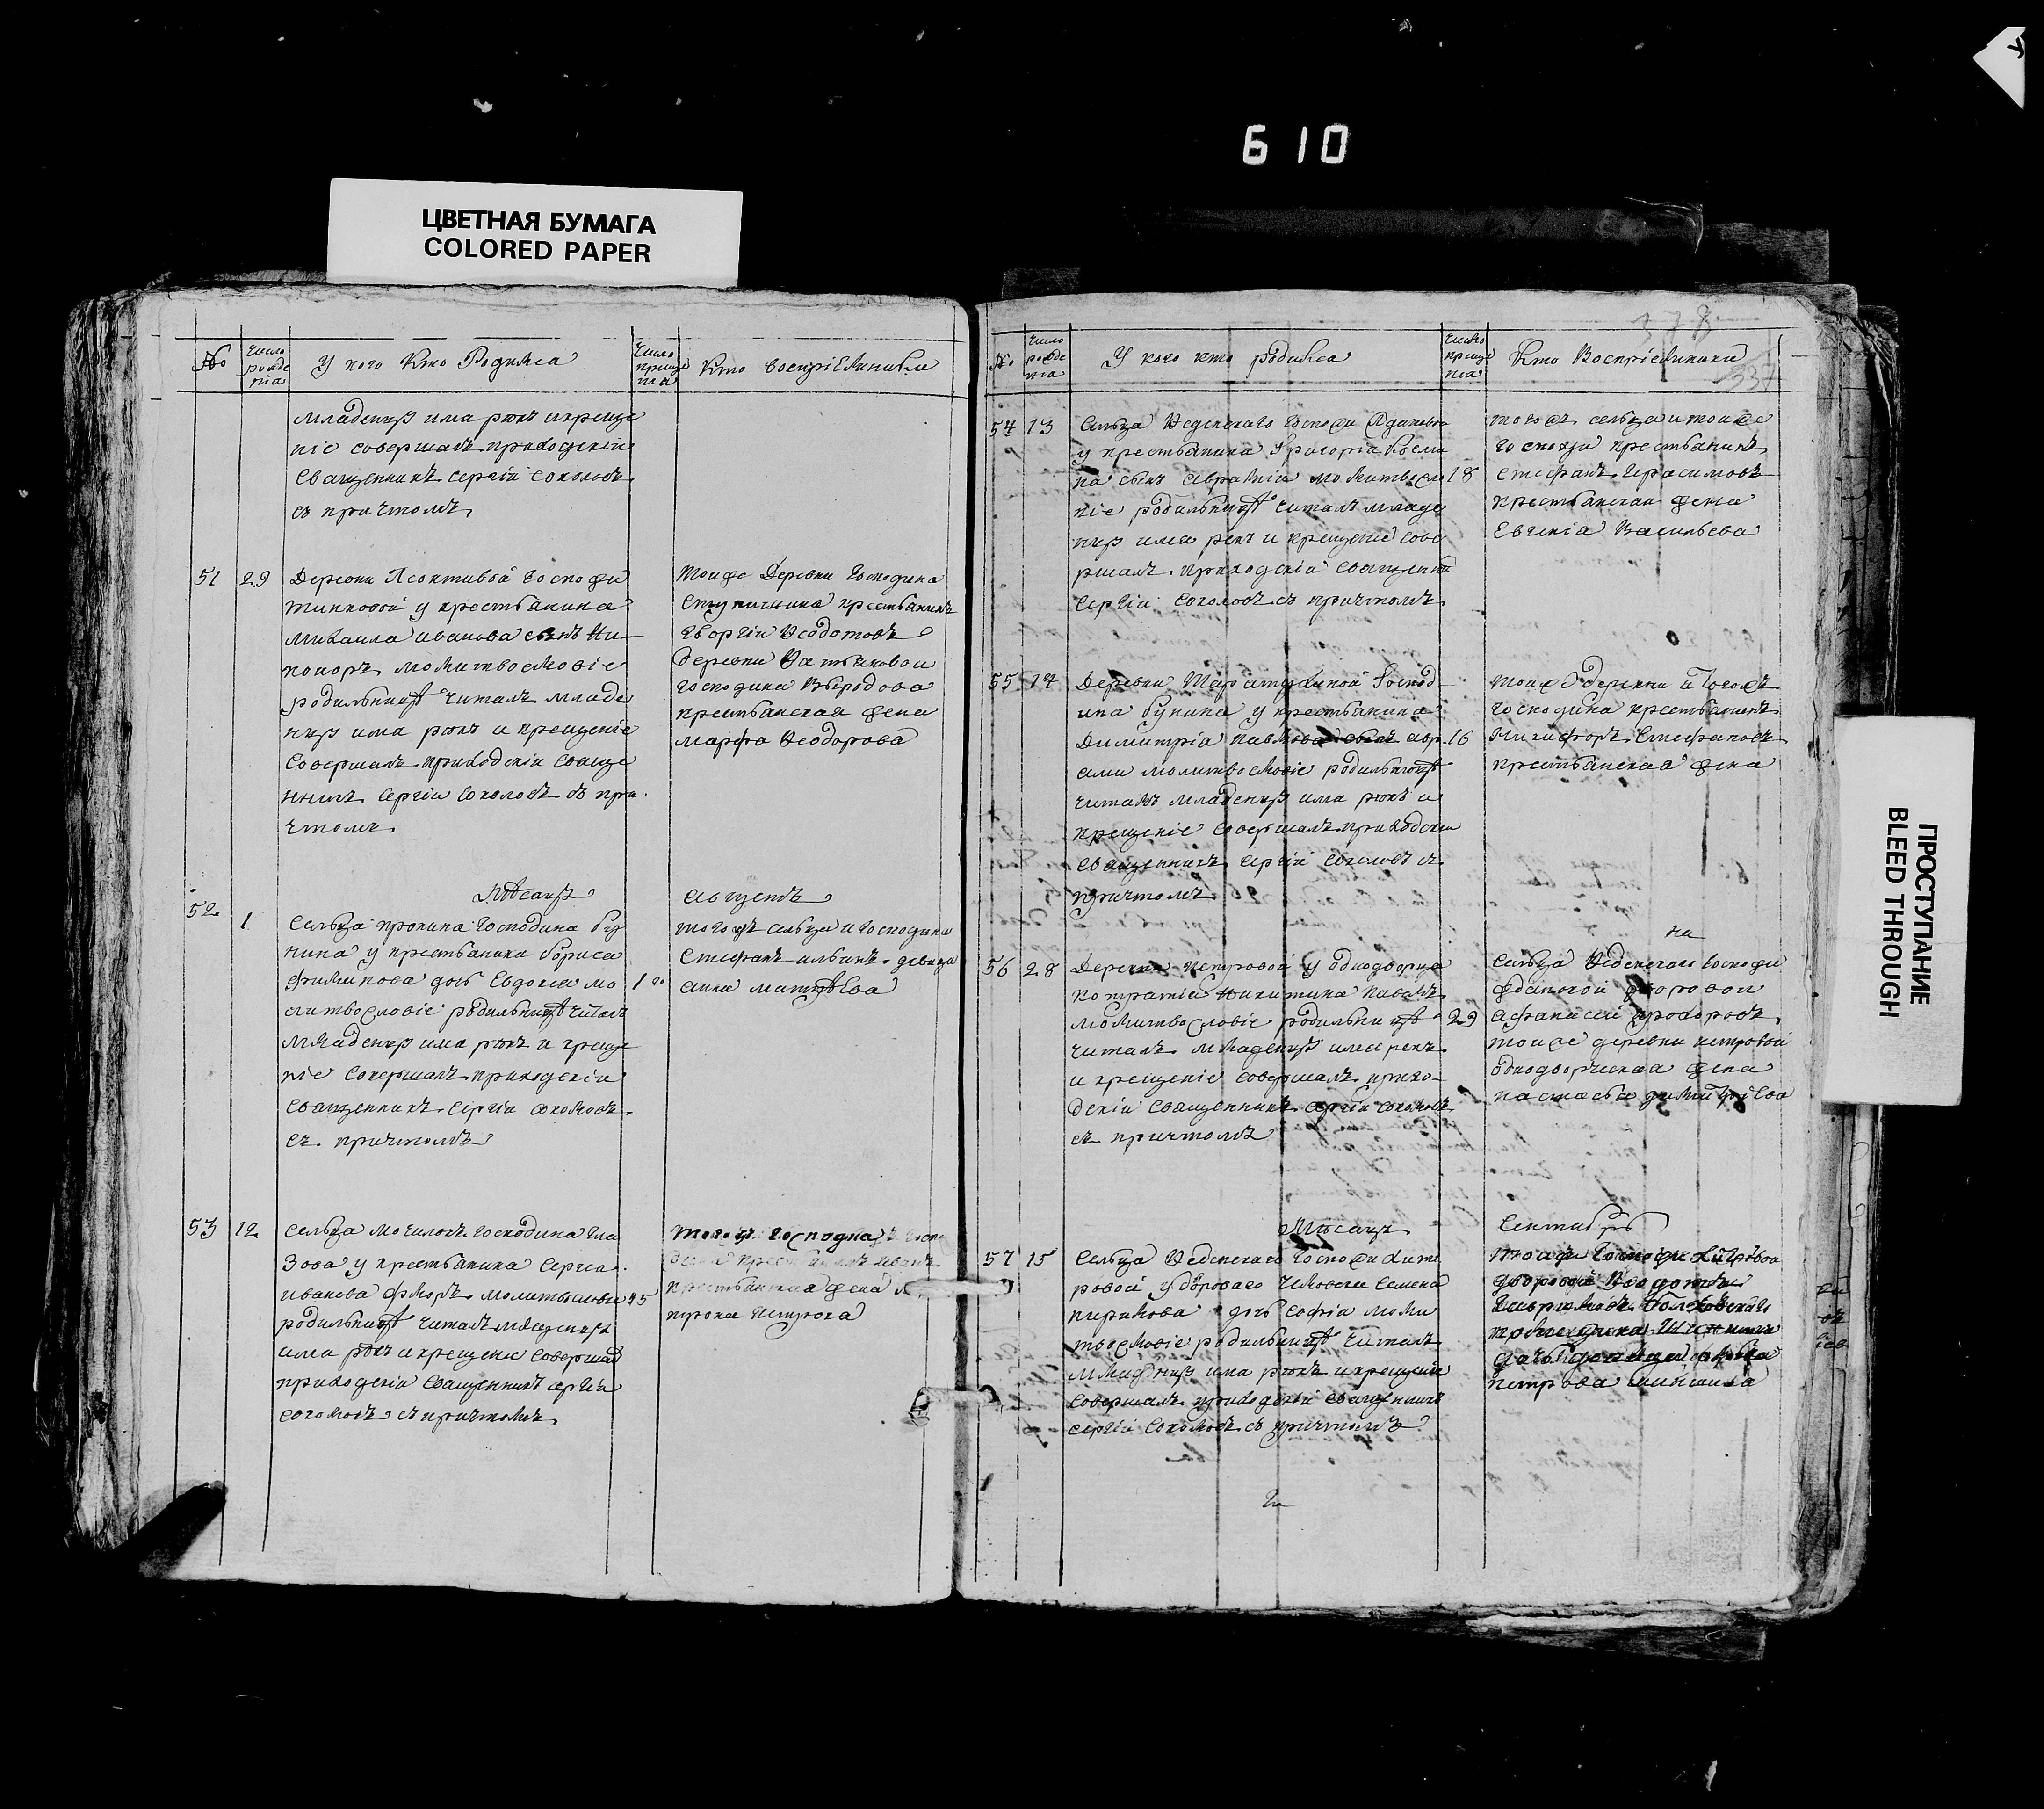 610
ЦВЕТНАЯ БУМАГА
COLORED PAPER
№
число рожде нiя
У кого Кто Родился
Число креще нiя
Кто воспрiемники
младенцу имя рекъ и креще
нiе совершалъ приходскiй
Священникъ Сергiй Соколовъ
съ причтомъ
51
29
Деревни госпожи
у крестьянина
Михаила иванова сынъ Ни-
каноръ молитвословiе
родильницѣ читалъ младе
нцу имя рекъ и крещенiе
Совершалъ приходскiй свяще
нникъ Сергiй Соколовъ съ при
чтомъ
тойже Деревни Господина
крестьянинъ
Георгiй Ѳеодотовъ
деревни
господина
крестьянская жена
марфа Ѳеодорова
Мѣсяцъ
Августъ
52
1
Сельца господина бу
нина у крестьянина бориса
филипова дочь Евдокiя мо
литвословiе родильницѣ читалъ
младенцу имя рекъ и креще
нiе совершалъ приходскiй
Священникъ Сергiй Соколовъ
съ причтомъ
1
тогожъ сельца и господина
Стефанъ ильинъ девица
анна матвѣева
53
12
сельца господина Гла
зова у крестьянина Сергiя
иванова флоръ молитвословiе
родильницѣ читалъ младенцу
имя рекъ и крещенiе совершалъ
приходскiй Священникъ Сергiй
Соколовъ съ причтомъ
15
крестьянинъ иванъ
крестьянская жена
Петрова
378
337
№
Число рожде нiя
У кого кто родился
Число креще нiя
Кто Воспрiемники
54
13
Сельца Ѳеденскаго госпожи
у крестьянина Григорiя
на сынъ молитвосло
вiе родильницѣ читалъ младе
нцу имя рекъ и крещенiе сове
ршалъ приходскiй Священникъ
Сергiй Соколовъ съ причтомъ
18
тогожъ сельца и тойже
госпожи крестьянинъ
Стефанъ Герасимовъ
крестьянская жена
Евгенiя Васильева
55
14
Деревни Господ
ина бунина у крестьянина
Димитрiя Павлова сынъ авр
амiй молитвословiе родильницѣ
читалъ младенцу имя рекъ и
крещенiе совершалъ приходскiй
Священникъ Сергiй Соколовъ съ
причтомъ
16
тойже Деревни и тогожъ
господина крестьянинъ
Никифоръ Стефановъ
крестьянская жена
на
56
28
Деревни Петровой у однодворца
Никитина Павелъ
молитвословiе родильницѣ
читалъ младенцу имя рекъ
и крещенiе совершалъ прихо-
дскiй Священникъ Сергiй Соколовъ
съ причтомъ
29
Сельца Ѳеденскаго госпожи
Ждановой дворовой
Афанасiй Прохоровъ
тойже деревни петровой
однодворческая жена
настасья димитрiева
Мѣсяцъ
Сентябрь
57
15
Сельца Ѳеденскаго Госпожи Хит
ровой у двороваго человека Семена
дочь Софiя моли
твословiе родильницѣ читалъ
младенцу имя рекъ и крещенiе
Совершалъ приходскiй Священникъ
Сергiй Соколовъ съ причтомъ
тояже госпожи Хитровой
дворовой Ѳеодотъ
Гавриловъ Болховскаго
помещика
дочь девица
петрова
ПРОСТУПАНИЕ
BLEED THROUGH